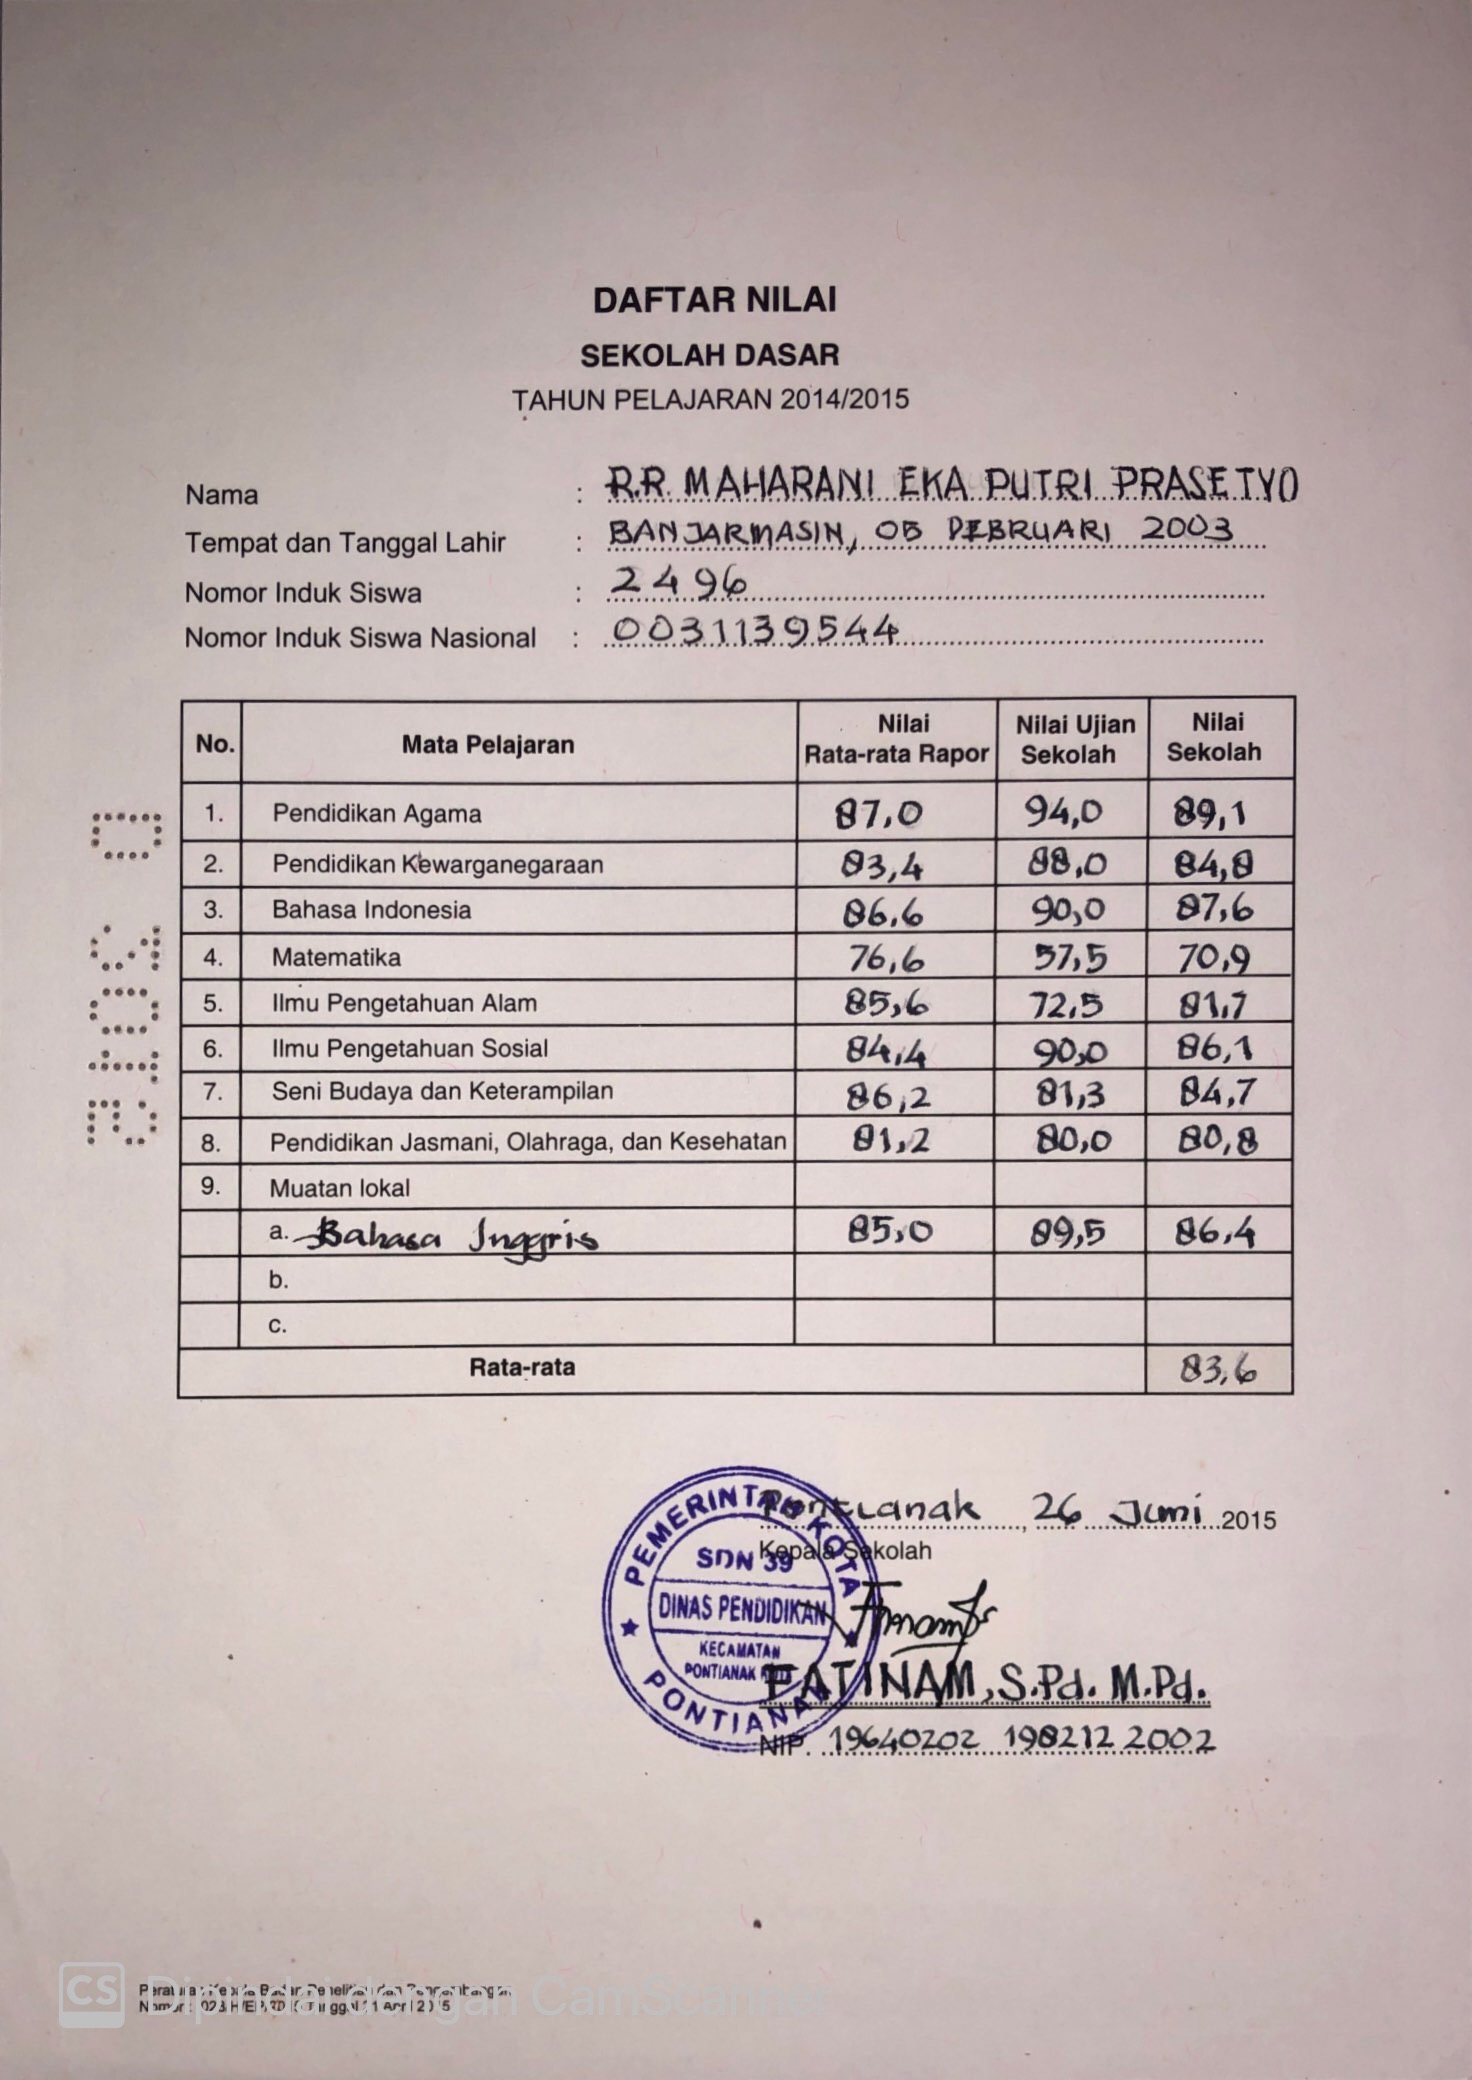 DAFTAR NILAI
SEKOLAH DASAR
TAHUN PELAJARAN 2014/2015
Nama : R.R. MAHARANI EKA PUTRI PRASETYO
Tempat dan Tanggal Lahir : BANJARMASIN, 05 PEBRUARI 2003
Nomor Induk Siswa : 2496
Nomor Induk Siswa Nasional : 0031139544
No. Mata Pelajaran Nilai Rata-rata Rapor Nilai Ujian Sekolah Nilai Sekolah
1. Pendidikan Agama 87,0 94,0 89,1
2. Pendidikan Kewarganegaraan 83,4 88,0 84,8
3. Bahasa Indonesia 86,6 90,0 87,6
4. Matematika 76,6 57,5 70,9
5. Ilmu Pengetahuan Alam 85,6 72,5 81,7
6. Ilmu Pengetahuan Sosial 84,4 90,0 86,1
7. Seni Budaya dan Keterampilan 86,2 81,3 84,7
8. Pendidikan Jasmani, Olahraga, dan Kesehatan 81,2 80,0 80,8
9. Muatan lokal
a. Bahasa Inggris 85,0 89,5 86,4
b.
c.
Rata-rata 83,6
Pontianak, 26 Juni 2015
Kepala Sekolah
PEMERINTAH KOTA
SDN 39
DINAS PENDIDIKAN
KECAMATAN
PONTIANAK
PONTIANAK
FATINAM, S.Pd. M.Pd.
NIP. 19640202 198212 2002
Peraturan Kepala Badan Penelitian dan Pengembangan
Nomor : Tanggal April 2015
CS Dipindai dengan CamScanner